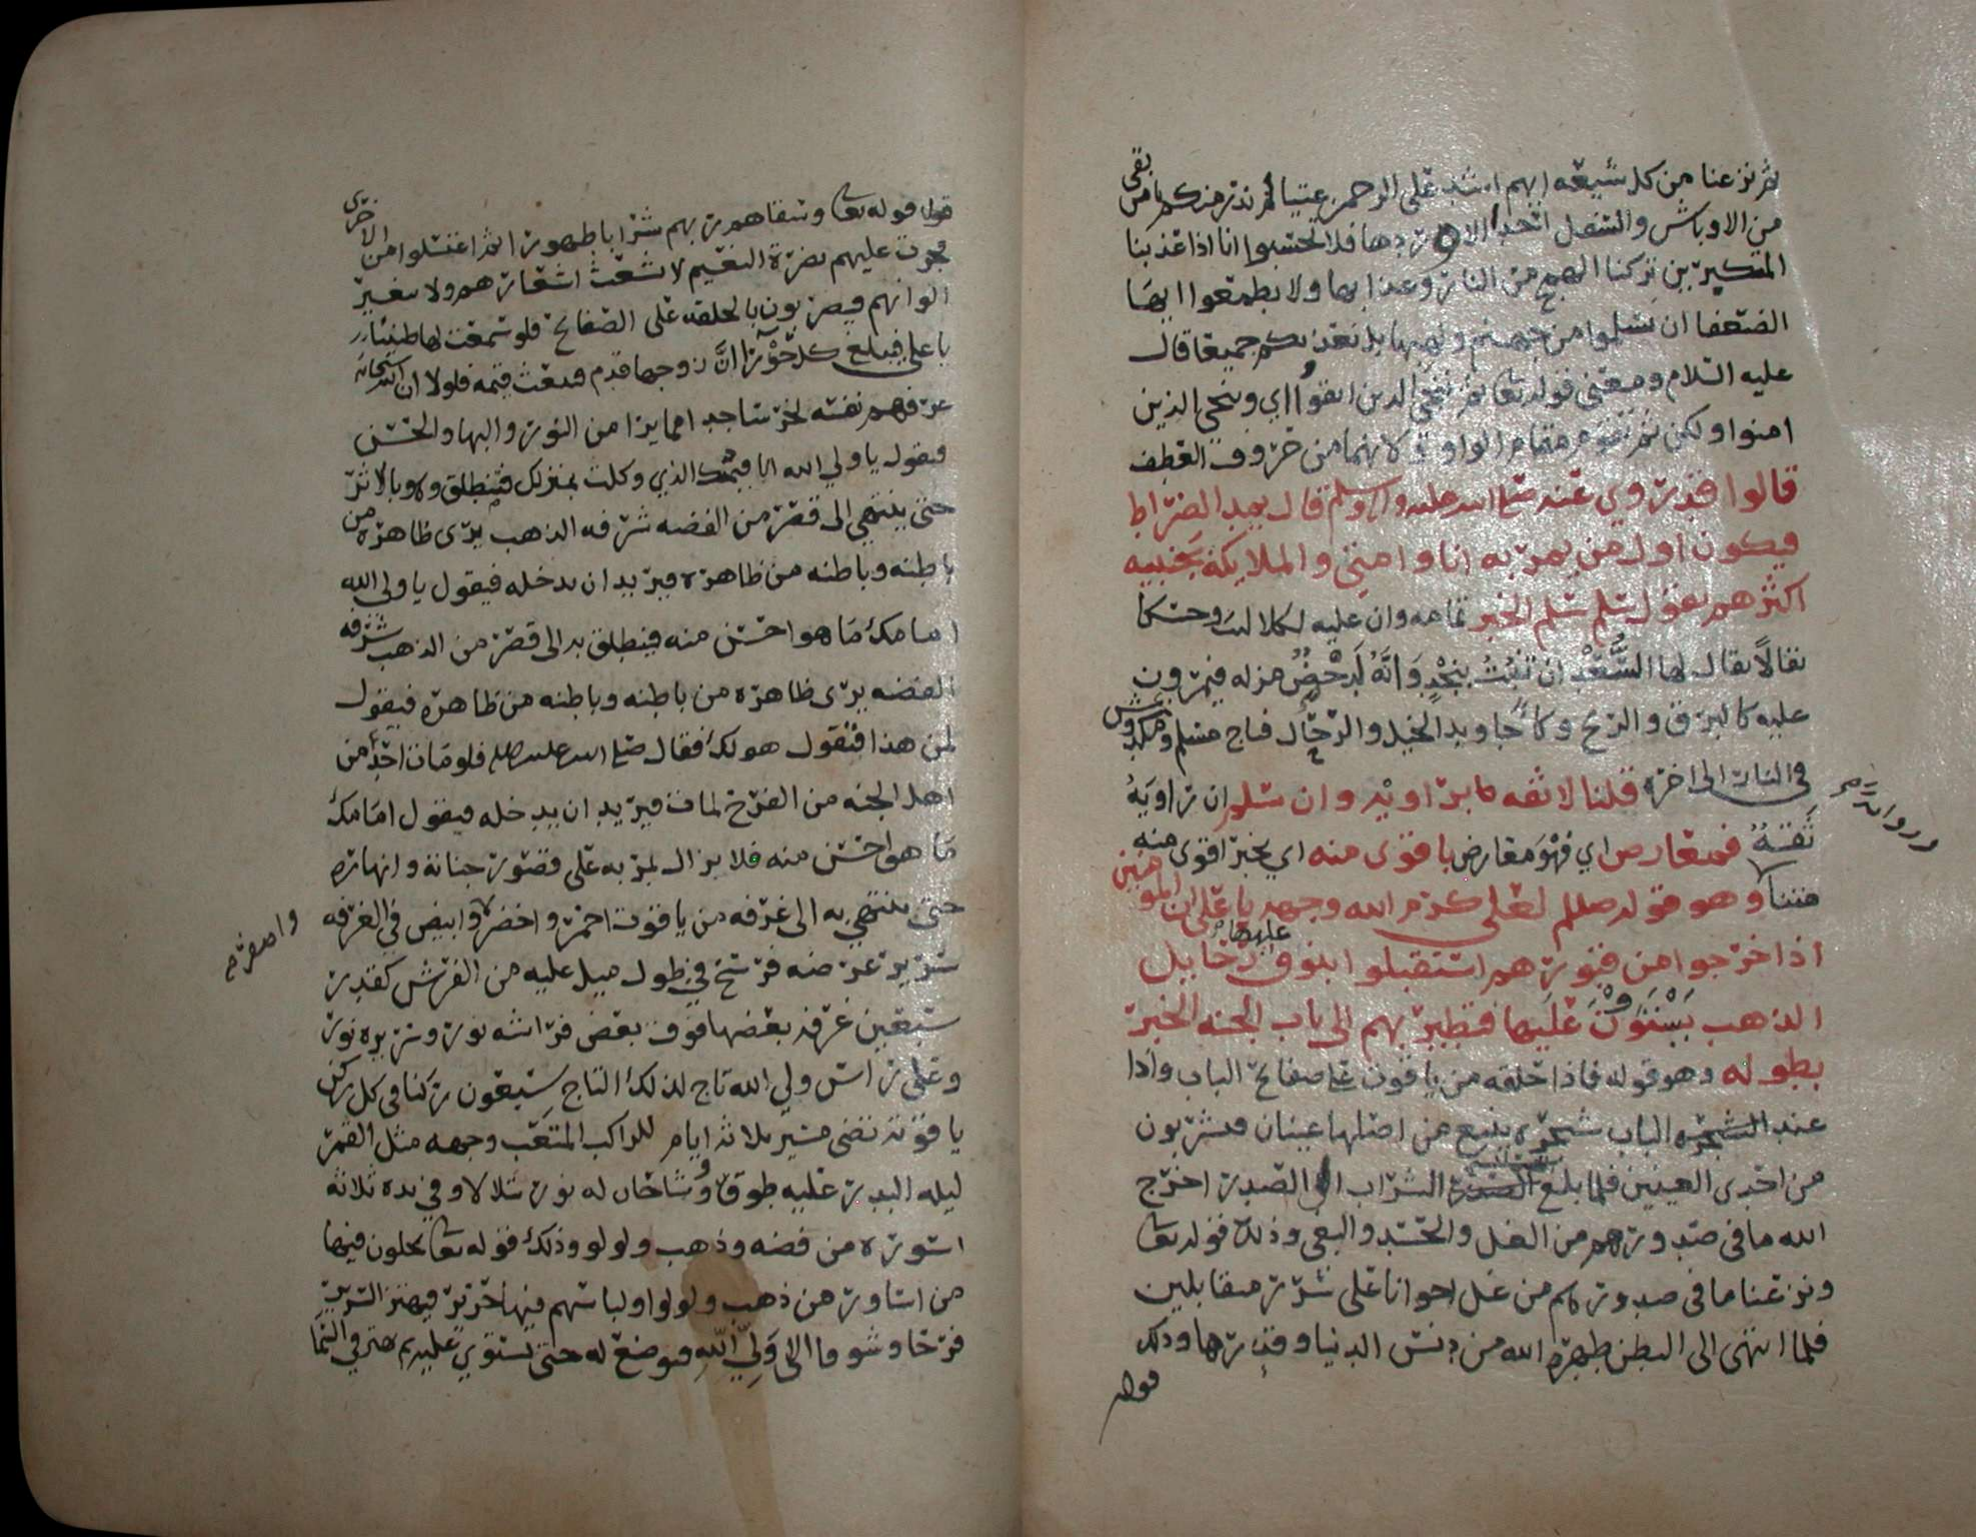 ثم نزعنا من كل شيعه ايهم اشد على الرحمن عتيا لم نذر منكم يا من بقى
من الاوباش والسفل احدا الا وردها فلا تحسبوا انا اذا عذبنا
المتكبرين تركنا الهمج من النار وعذابها ولا يطمعوا ايضا
الضعفا ان يسلموا من جهنم ولهبها بل نعذبكم جميعا قال
عليه السلام ومعنى قوله تعا ثم ننجى الذين اتقوا اي وننجى الذين
امنوا ولكن ثم تقوم مقام الواو لانهما من حروف العطف
قالوا قد روي عنه صلى الله عليه واله وسلم قال يمد الصراط
فيكون اول من يمر به انا وامتي والملايكة بجنبيه
اكثرهم يقول سلم سلم الخبر تمامه وان عليه لكلاليب وحسكا
يقال لها السعد ان تنبت بنجد وانه لدحض مزله فيمرون
عليه كالبرق والريح وكاجاويد الخيل والرجال فناج مسلم ومكدوش
في النار الى اخره قلنا لا ثقه براويه وان سلم ان راويه
ثقة فمعارض اي فهو معارض باقوى منه اي بخبر اقوى منه
متنا وهو قوله صللم لعلي كرم الله وجهه يا علي ان المومنين
اذا خرجوا من قبورهم استقبلوا بنوق عليها رحايل
الذهب يستوون عليها فتطير بهم الى باب الجنه الخبر
بطوله وهو قوله فاذا حلقه من ياقوت على صفائح الباب واذا
عند الباب شجره ينبع من اصلها عينان فيشربون
من احدى العينين فلما بلغ الشراب الى الصدر اخرج
الله ما في صدورهم من الغل والحسد والبغي وذلك قوله تعا
ونزعنا ما في صدورهم من غل اخوانا على سرر متقابلين
فلما انتهى الى البطن طهره الله من دنس الدنيا وقذرها وذلك
قوله
قوله تعا وسقاهم ربهم شرابا طهورا ثم اغتسلوا من الاخرى
فجرت عليهم نضرة النعيم لا تشعث اشعارهم ولا تغير
الوانهم فيضربون بالحلقه على الصفائح فلو سمعت لها طنينا
يا علي فيبلغ كل حورا ان زوجها قدم فتبعث قيمه فلولا ان الله سبحانه
عرفهم نفسه لخر ساجدا مما يرا من النور والبها والحسن
فيقول يا ولي الله انا قيمك الذي وكلت بمنزلك فينطلق وهو بالاثر
حتى ينتهي الى قصر من الفضه شرفه الذهب يرى ظاهره من
باطنه وباطنه من ظاهره فيريد ان يدخله فيقول يا ولي الله
امامك ما هو احسن منه فينطلق به الى قصر من الذهب شرفه
الفضه يرى ظاهره من باطنه وباطنه من ظاهره فيقول
لمن هذا فيقول هو لك فقال صلى الله عليه فلو مات احد من
اهل الجنه من الفرح لمات فيريد ان يدخله فيقول امامك
ما هو احسن منه فلا يزال يمر به على قصور جنانة وانهاره
حتى ينتهي به الى غرفه من ياقوت احمر واخضر وابيض في الغرفه
واصفر
سرير عرضه فرسخ في طول ميل عليه من الفرش كقدر
سبعين غرفه بعضها فوق بعض فراشه نور وسريره نور
وعلى راس ولي الله تاج لذلك التاج سبعون ركنا في كل ركن
ياقوته تضى مسير ثلاثه ايام للراكب المتعب وجهه مثل القمر
ليله البدر عليه طوق ووشاحان له نور يتلالا وفي يده ثلاثة
اسوره من فضه وذهب ولولو وذلك قوله تعا يحلون فيها
من اساور من ذهب ولولوا ولباسهم فيها حرير فيهتز السرير
فرحا وشوقا الى ولي الله فيوضع له حتى يستوي عليه